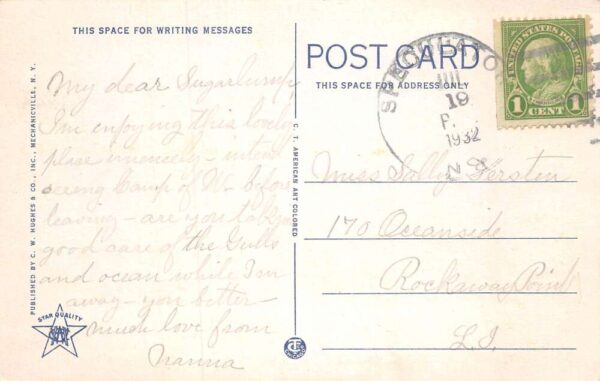 THIS SPACE FOR WRITING MESSAGES
My dear Sugarlump
I'm enjoying this lovely
place immensely - intend
seeing Camp of W. before
leaving - are you taking
good care of the Gulls
and ocean while I'm
away - you better -
much love from
Nanna
PUBLISHED BY C. W. HUGHES & CO., INC., MECHANICVILLE, N. Y.
STAR QUALITY
C. T. AMERICAN ART COLORED
POST CARD
THIS SPACE FOR ADDRESS ONLY
SPECULATOR
JUL
19
P.
1932
N.Y.
UNITED STATES POSTAGE
1 CENT 1
Miss Sally Kersten
170 Oceanside
Rockaway Point
L.I.